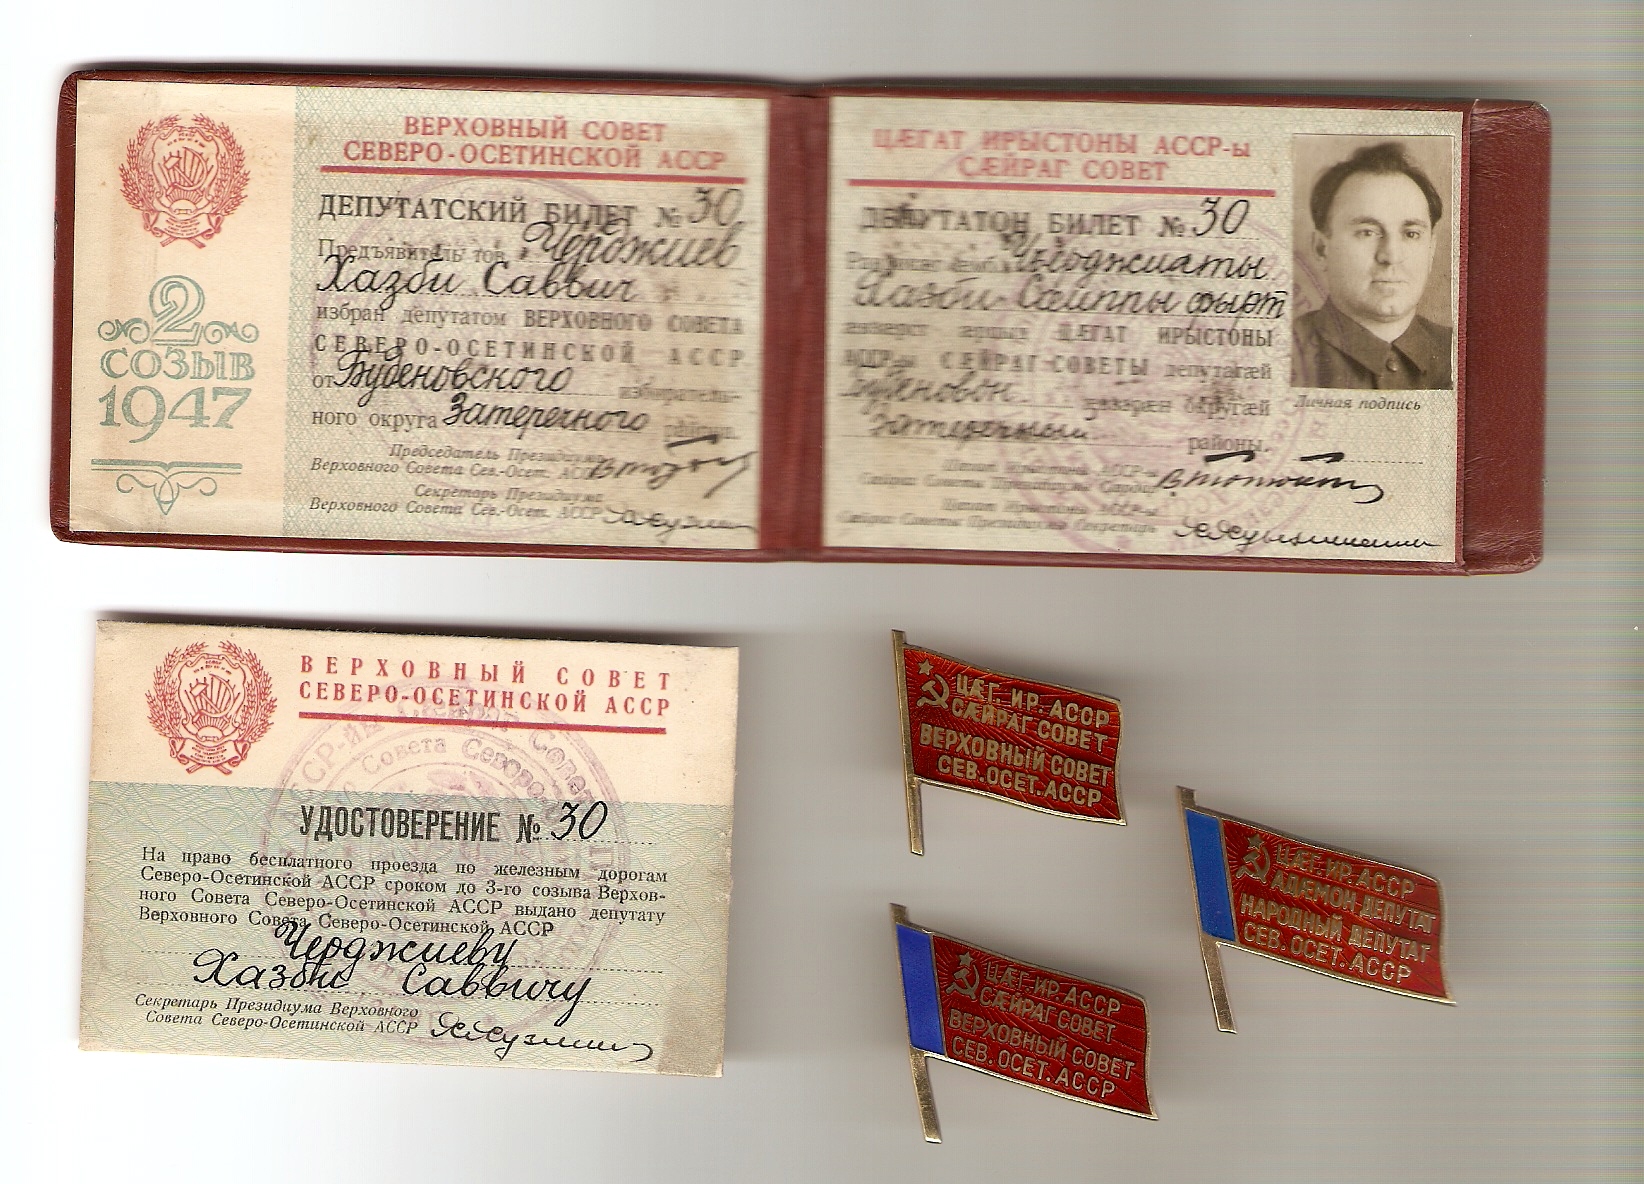 2
СОЗЫВ
1947
ВЕРХОВНЫЙ СОВЕТ
СЕВЕРО-ОСЕТИНСКОЙ АССР
ДЕПУТАТСКИЙ БИЛЕТ № 30
Предъявитель тов. Черджиев
Хазби Саввич
избран депутатом ВЕРХОВНОГО СОВЕТА
СЕВЕРО-ОСЕТИНСКОЙ АССР
от Буденовского избиратель-
ного округа Затеречного
Председатель Президиума
Верховного Совета Сев.-Осет. АССР
Секретарь Президиума
Верховного Совета Сев.-Осет. АССР
ЦÆГАТ ИРЫСТОНЫ АССР-ы
СÆЙРАГ СОВЕТ
ДЕПУТАТОН БИЛЕТ № 30
Черджиаты
Хазби фырт
ЦÆГАТ ИРЫСТОНЫ
АССР-ы СÆЙРАГ СОВЕТЫ депутатæй
æвзæрæн округæй
районы.
Личная подпись
ВЕРХОВНЫЙ СОВЕТ
СЕВЕРО-ОСЕТИНСКОЙ АССР
УДОСТОВЕРЕНИЕ № 30
На право бесплатного проезда по железным дорогам
Северо-Осетинской АССР сроком до 3-го созыва Верхов-
ного Совета Северо-Осетинской АССР выдано депутату
Верховного Совета Северо-Осетинской АССР
Черджиеву
Хазби Саввичу
Секретарь Президиума Верховного
Совета Северо-Осетинской АССР
ЦÆГ. ИР. АССР
СÆЙРАГ СОВЕТ
ВЕРХОВНЫЙ СОВЕТ
СЕВ. ОСЕТ. АССР
ЦÆГ. ИР. АССР
АДÆМОН ДЕПУТАТ
НАРОДНЫЙ ДЕПУТАТ
СЕВ. ОСЕТ. АССР
ЦÆГ. ИР. АССР
СÆЙРАГ СОВЕТ
ВЕРХОВНЫЙ СОВЕТ
СЕВ. ОСЕТ. АССР